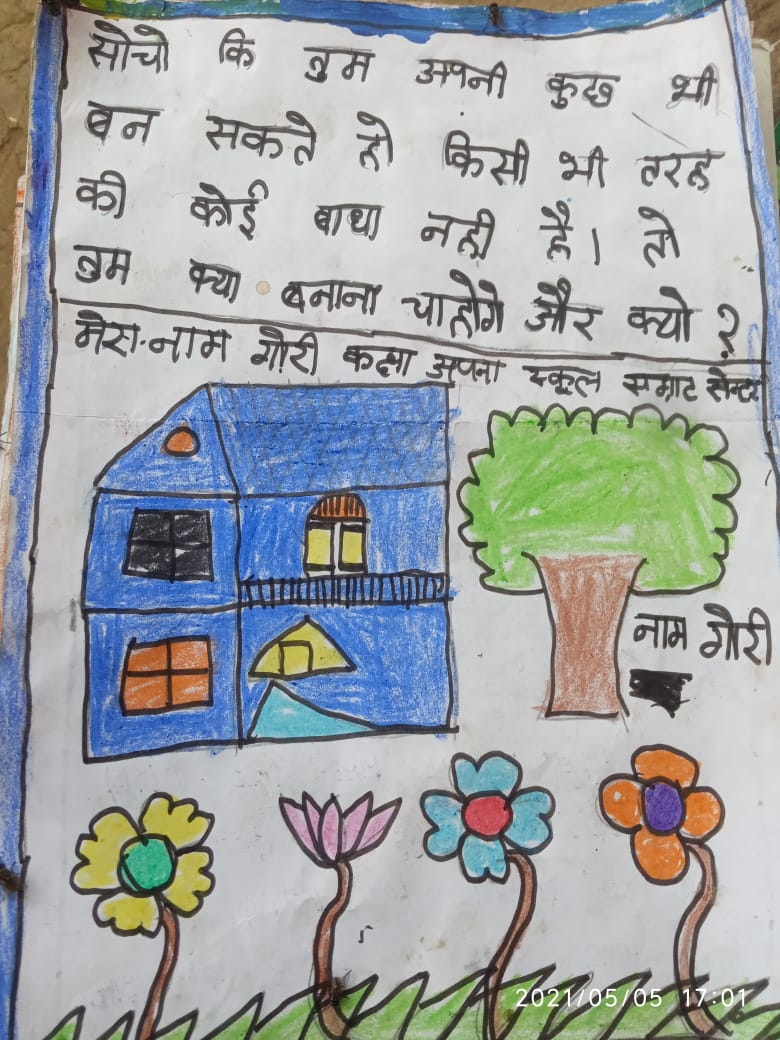 सोचो कि तुम अपनी कुछ भी
बन सकते हो किसी भी तरह
की कोई बाधा नही है। तो
तुम क्या बनाना चाहोगे और क्यो ?
मेरा नाम गोरी कक्षा अपना स्कूल सम्राट सेन्टर
नाम गोरी
2021/05/05 17:01